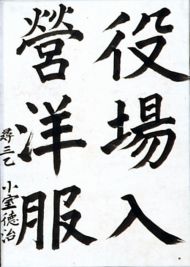 役場入
營洋服
尋三乙 小室徳治